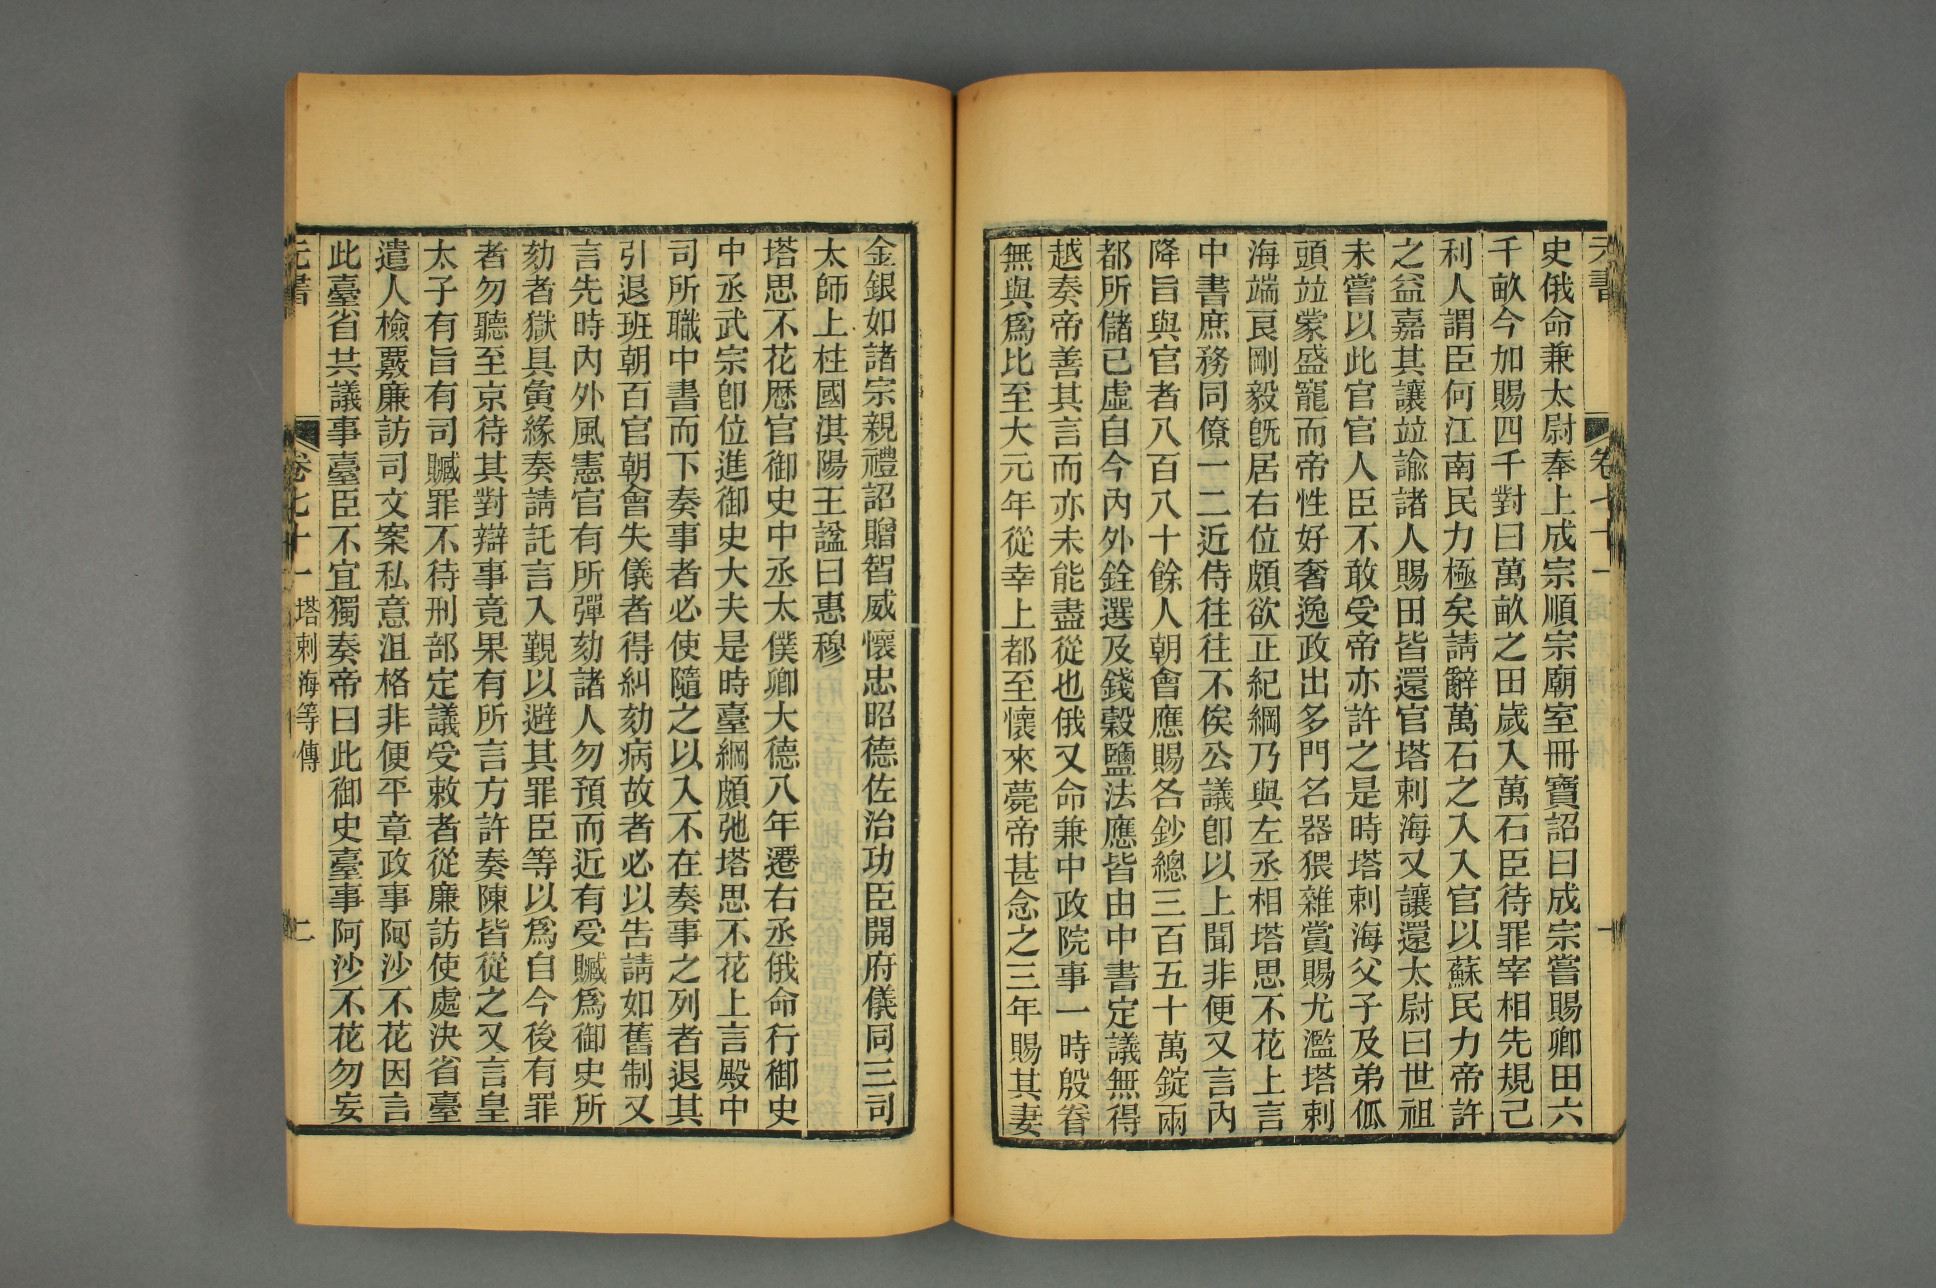 元書 卷七十一 一
史俄命兼太尉奉上成宗順宗廟室冊寶詔曰成宗嘗賜卿田六
千畝今加賜四千對曰萬畝之田歲入萬石臣待罪宰相先規己
利人謂臣何江南民力極矣請辭萬石之入入官以蘇民力帝許
之益嘉其讓竝諭諸人賜田皆還官塔剌海又讓還太尉曰世祖
未嘗以此官官人臣不敢受帝亦許之是時塔剌海父子及弟伭
頭竝蒙盛寵而帝性好奢逸政出多門名器猥雜賞賜尤濫塔剌
海端㫐剛毅旣居右位頗欲正紀綱乃與左丞相塔思不花上言
中書庶務同僚一二近侍往往不俟公議卽以上聞非便又言內
降旨與官者八百八十餘人朝會應賜各鈔總三百五十萬錠兩
都所儲已虛自今內外銓選及錢穀鹽法應皆由中書定議無得
越奏帝善其言而亦未能盡從也俄又命兼中政院事一時殷眷
無與爲比至大元年從幸上都至懷來薨帝甚念之三年賜其妻
金銀如諸宗親禮詔贈智威懷忠昭德佐治功臣開府儀同三司
太師上柱國淇陽王諡曰惠穆
塔思不花歴官御史中丞太僕卿大德八年遷右丞俄命行御史
中丞武宗卽位進御史大夫是時臺綱頗弛塔思不花上言殿中
司所職中書而下奏事者必使隨之以入不在奏事之列者退其
引退班朝百官朝會失儀者得糾劾病故者必以吿請如舊制又
言先時內外風憲官有所彈劾諸人勿預而近有受贓爲御史所
劾者獄具夤緣奏請託言入覲以避其罪臣等以爲自今後有罪
者勿聽至京待其對辯事竟果有所言方許奏陳皆從之又言皇
太子有旨有司贓罪不待刑部定議受敕者從廉訪使處決省臺
遣人檢覈廉訪司文案私意沮格非便平章政事阿沙不花因言
此臺省共議事臺臣不宜獨奏帝曰此御史臺事阿沙不花勿妄
元書 卷七十一 塔剌海等傳 二